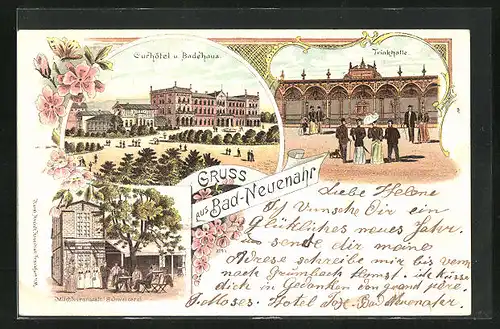 Curhôtel u. Badehaus.
Trinkhalle.
GRUSS
aus Bad-Neuenahr
Milchkuranstalt Schweizerei
Liebe Helene
Ich wunsche Dir ein
Glükliches neues Jahr.
sende dir meine
Adrese schreibe mir bis wenn
nach Grumbach kommst. ich küsse
dich in Gedanken dein grand père
J. Moses. Hotel Bad Neuenahr.